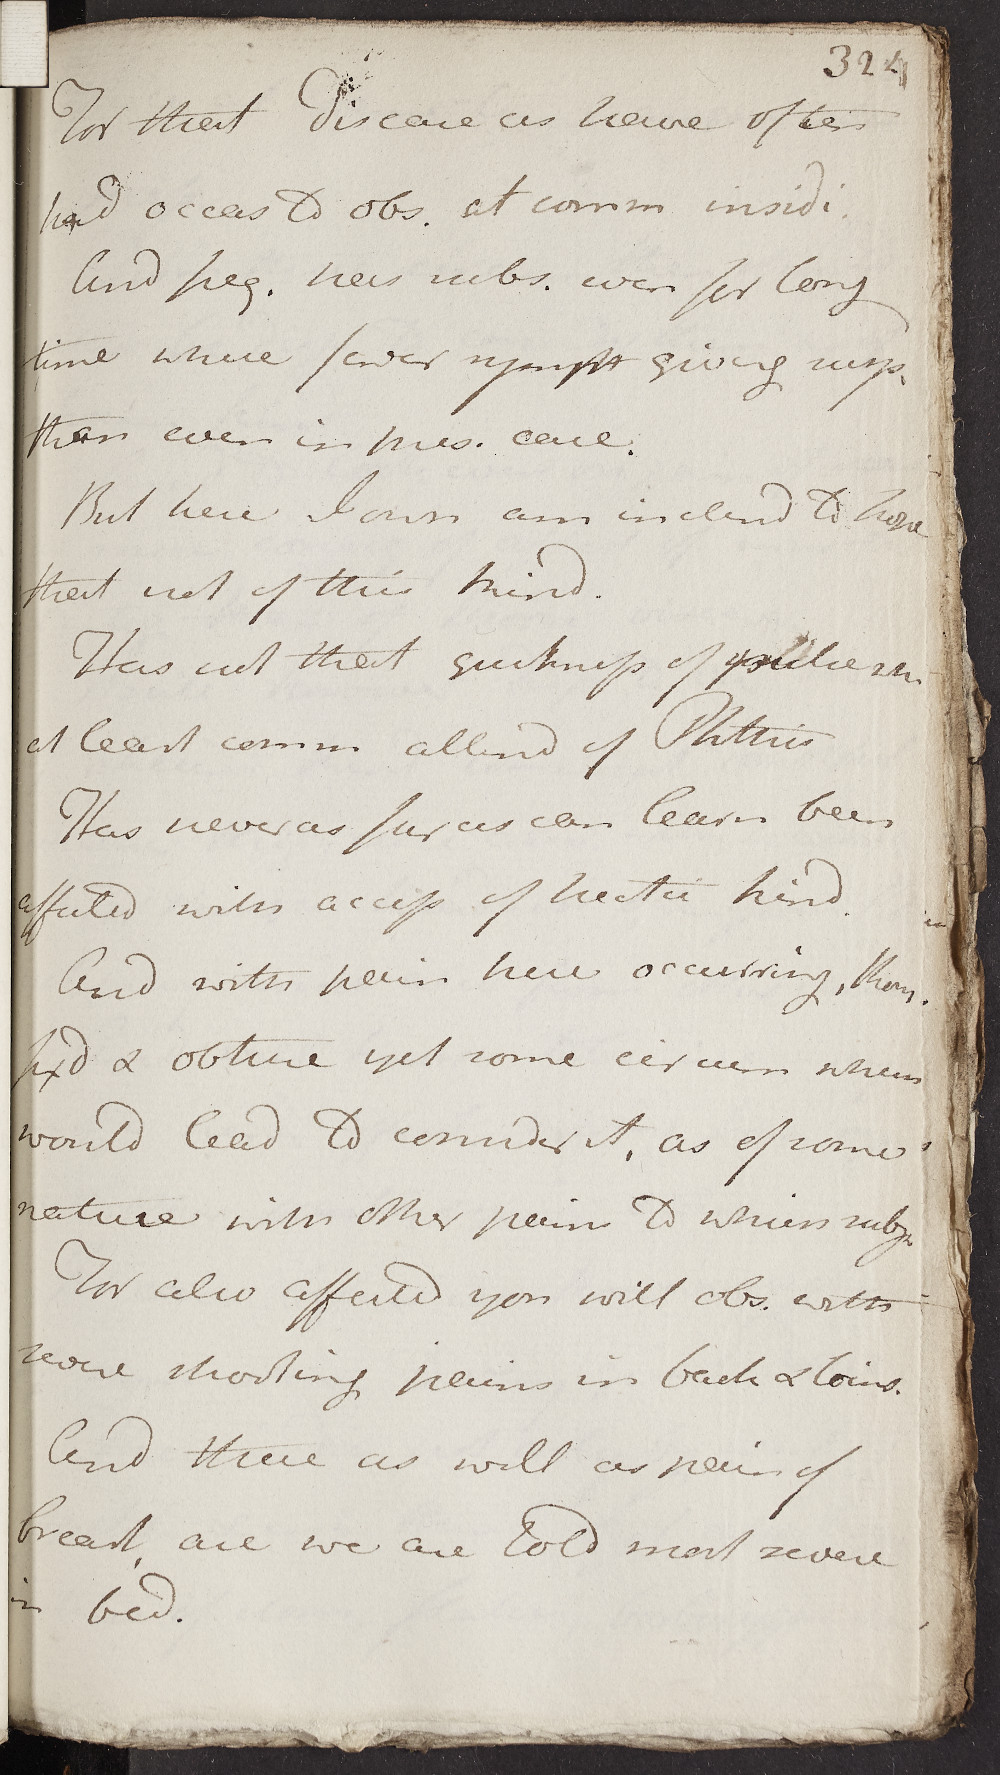 324
For that Disease as have often
had occas to obs. at comm insidi.
And freq. has subs. even for long
time where fewer sympt giving susp.
than even in pres. case.
But here I own am inclend to hope
that not of this kind.
Has not that quickness of pulse wh.
at least comm attend of Phthisis
Has never as far as can learn been
affected with access of hectic kind.
And with pain here occurring, thou.
fixd & obtuse yet some circum when
would lead to consider it, as of some
nature with other pains to which subj.
For also affected you will obs. with
severe shooting pains in back & loins.
And these as well as pain of
breast, are we are told most severe
in bed.